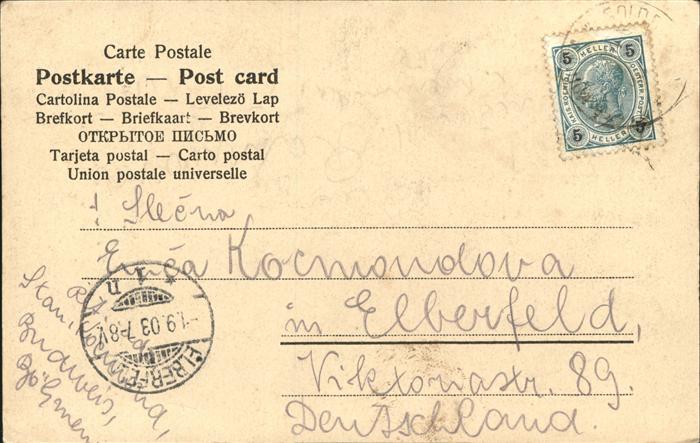 Carte Postale
Postkarte — Post card
Cartolina Postale — Levelező Lap
Brefkort — Briefkaart — Brevkort
ОТКРЫТОЕ ПИСЬМО
Tarjeta postal — Carto postal
Union postale universelle
5 HELLER 5
5 HELLER 5
! Slečna
Kocmondova
in Elberfeld,
Viktoriastr. 89.
Deutschland.
1
n
-1.9.03.7-8V.
ELBERFE
Budweis,
Böhmen